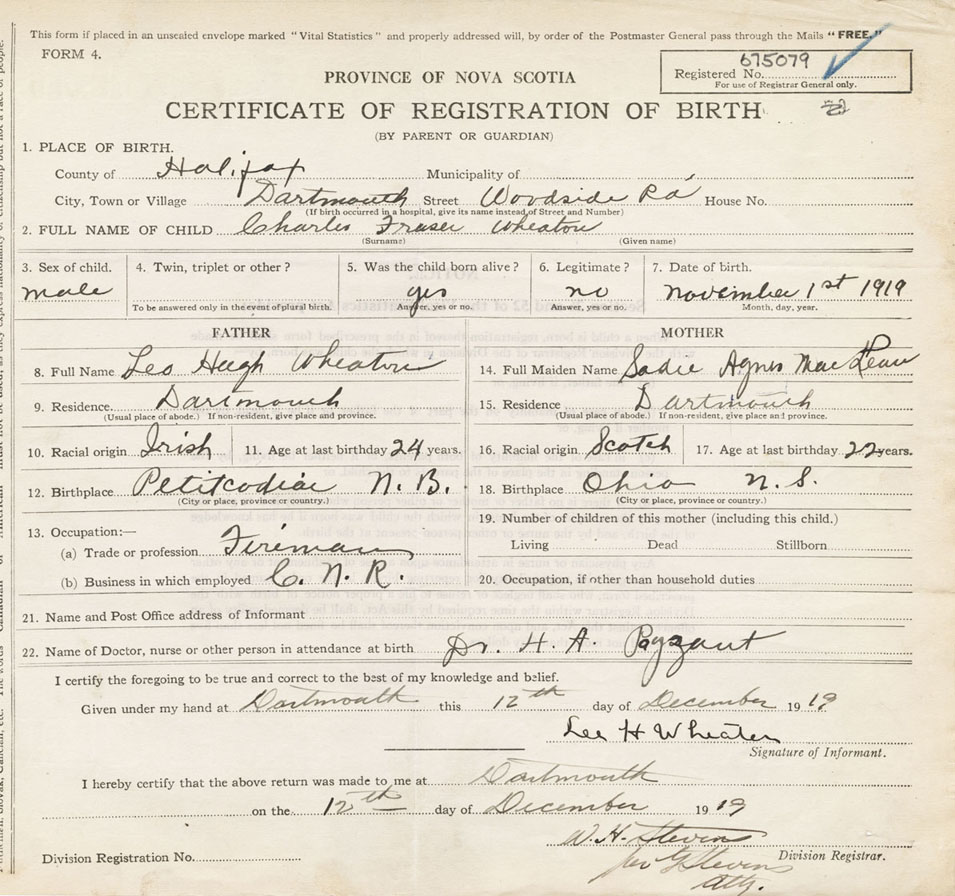 This form if placed in an unsealed envelope marked "Vital Statistics" and properly addressed will, by order of the Postmaster General pass through the Mails "FREE."
FORM 4.
675079
Registered No.
For use of Registrar General only.
PROVINCE OF NOVA SCOTIA
CERTIFICATE OF REGISTRATION OF BIRTH
(BY PARENT OR GUARDIAN)
1. PLACE OF BIRTH.
County of Halifax Municipality of
City, Town or Village Dartmouth Street Woodside Rd House No.
(If birth occurred in a hospital, give its name instead of Street and Number)
2. FULL NAME OF CHILD Charles Fraser Wheaton
(Surname) (Given name)
3. Sex of child. 4. Twin, triplet or other? 5. Was the child born alive? 6. Legitimate? 7. Date of birth.
male yes no November 1st 1919
To be answered only in the event of plural birth. Answer, yes or no. Answer, yes or no. Month, day, year.
FATHER MOTHER
8. Full Name Leo Hugh Wheaton 14. Full Maiden Name Sadie Agnes MacLean
9. Residence. Dartmouth 15. Residence Dartmouth
(Usual place of abode.) If non-resident, give place and province. (Usual place of abode.) If non-resident, give place and province.
10. Racial origin Irish 11. Age at last birthday 24 years. 16. Racial origin Scotch 17. Age at last birthday 22 years.
12. Birthplace Petitcodiac N. B. 18. Birthplace Ohio N. S.
(City or place, province or country.) (City or place, province or country.)
13. Occupation:— 19. Number of children of this mother (including this child.)
(a) Trade or profession Fireman Living Dead Stillborn
(b) Business in which employed C. N. R. 20. Occupation, if other than household duties
21. Name and Post Office address of Informant
22. Name of Doctor, nurse or other person in attendance at birth Dr. H. A. Payzant
I certify the foregoing to be true and correct to the best of my knowledge and belief.
Given under my hand at Dartmouth this 12th day of December 1919
Leo H Wheaton
Signature of Informant.
I hereby certify that the above return was made to me at Dartmouth
on the 12th day of December 1919
W. H. Stevens
Division Registration No. Stevens Division Registrar.